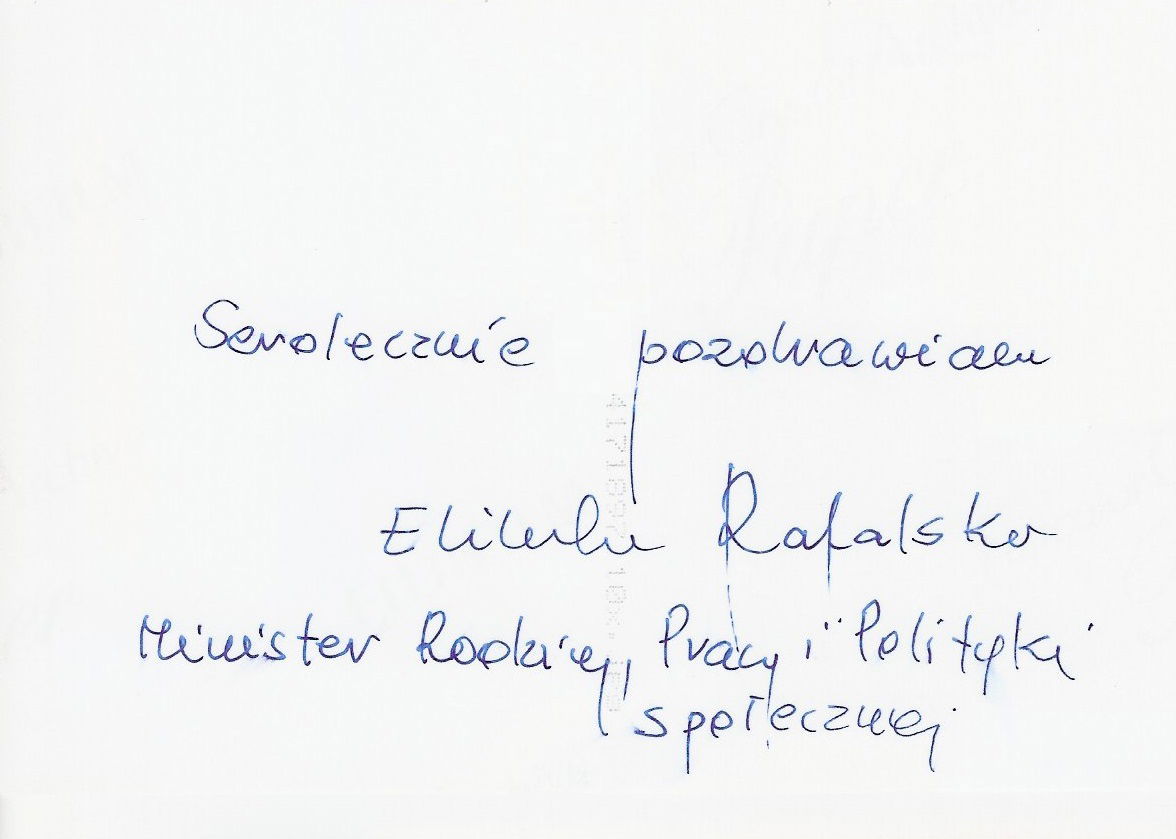 Serdecznie pozdrawiam
Elżbieta Rafalska
Minister Rodziny, Pracy i Polityki
społecznej